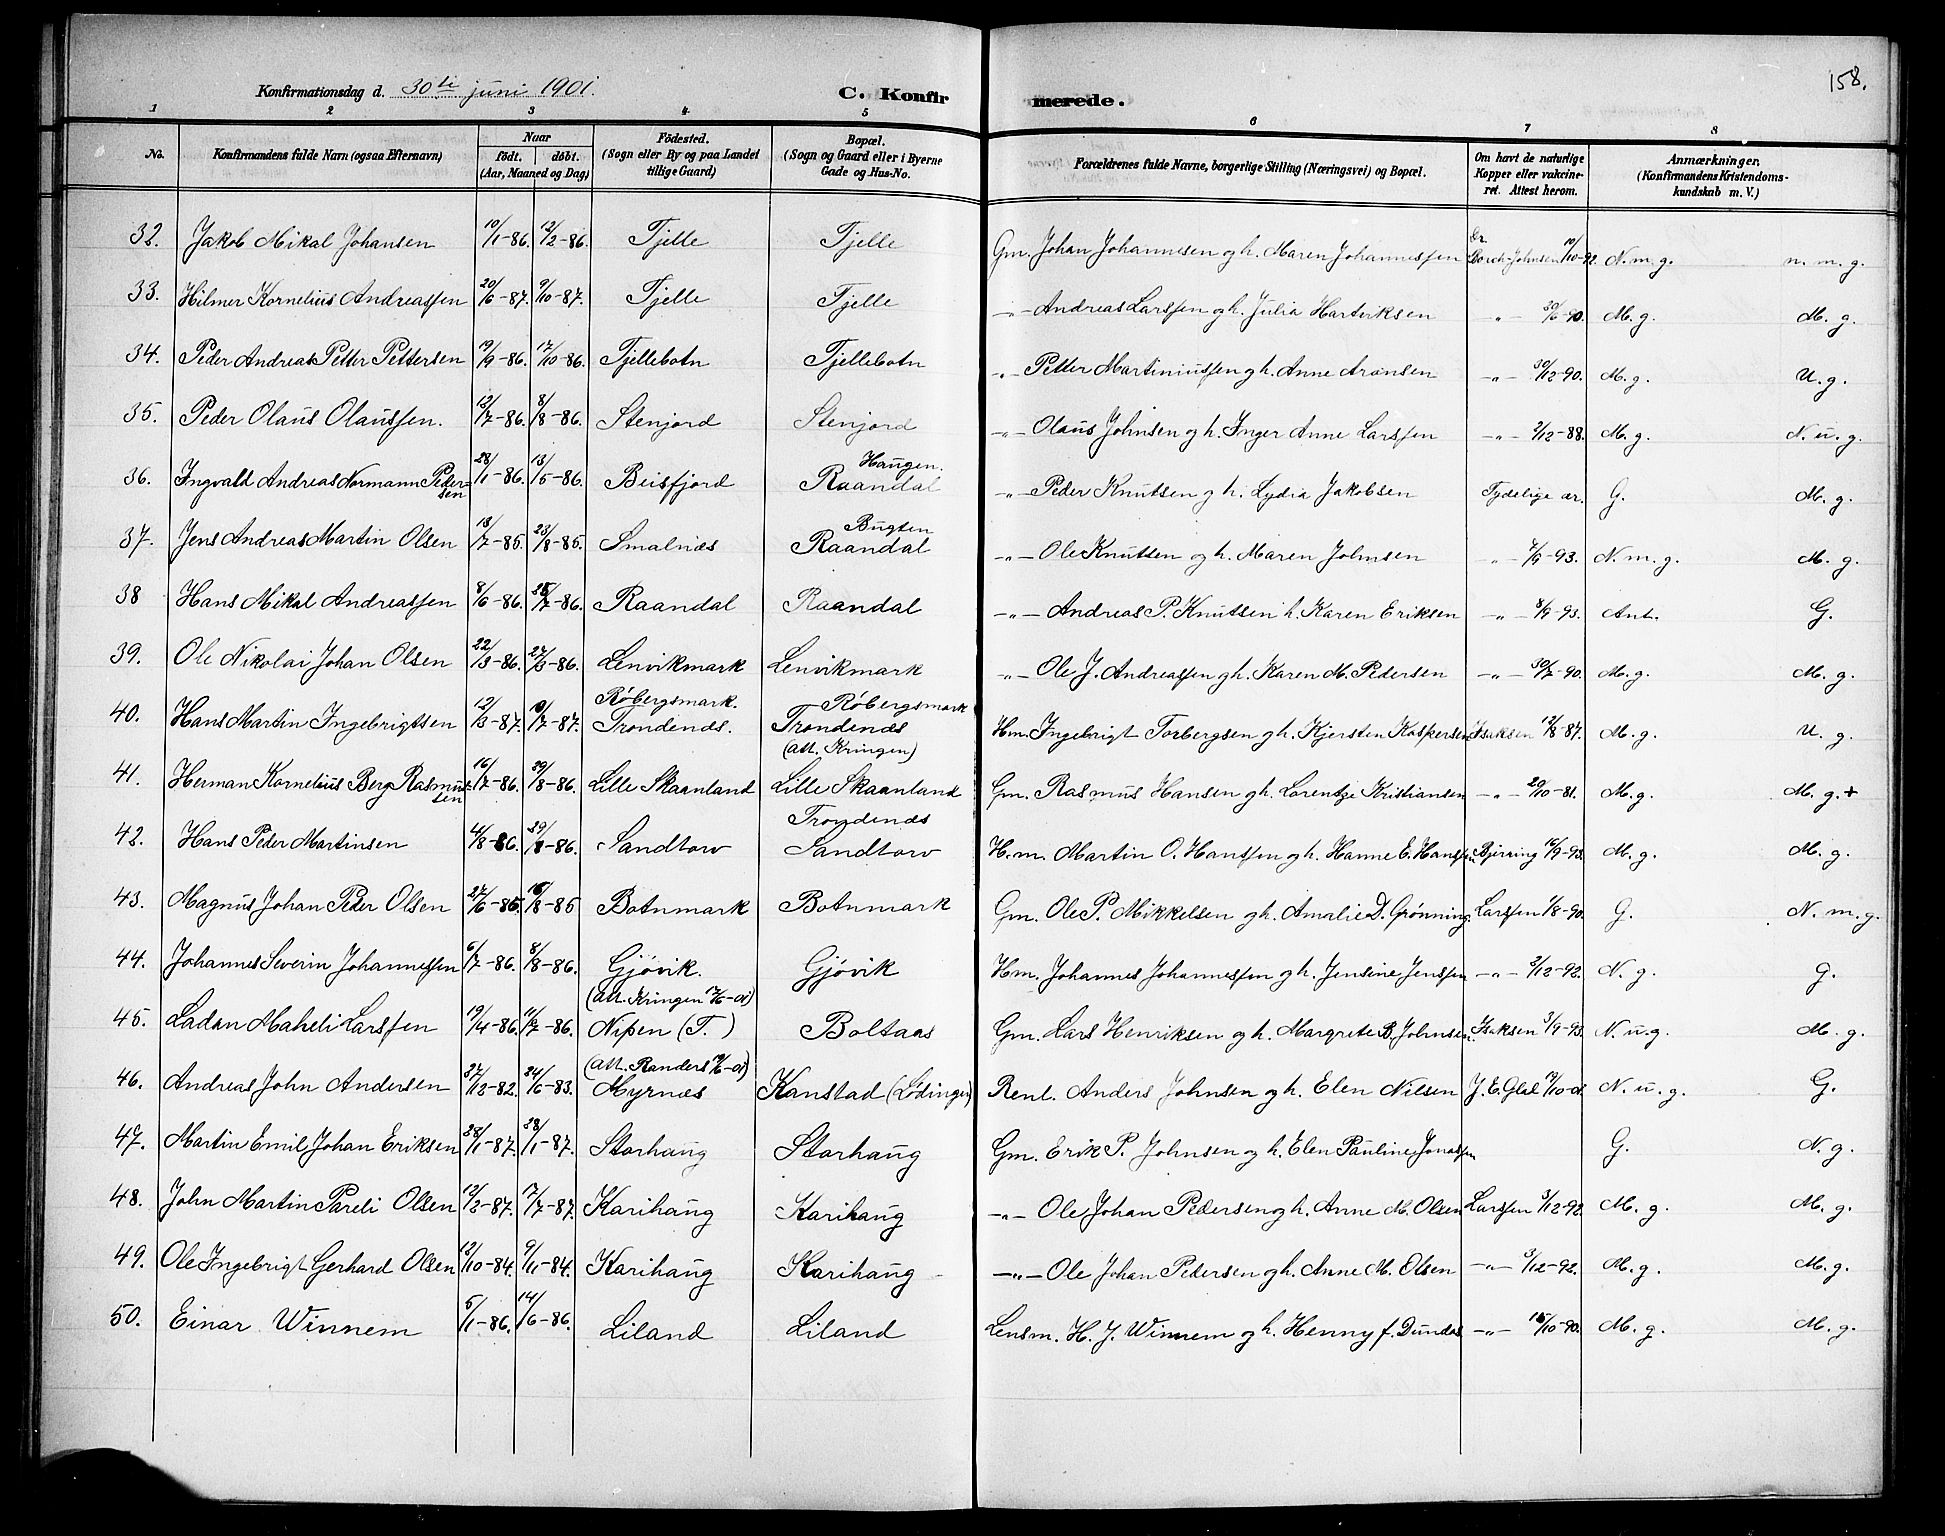 158.
Konfirmationsdag d. 30te juni 1901.
C. Konfirmerede.
1 2 3 4 5 6 7 8
No. | Konfirmandens fulde Navn (ogsaa Efternavn) | Naar födt. döbt. (Aar, Maaned og Dag) | Födested. (Sogn eller By og paa Landet tillige Gaard) | Bopæl. (Sogn og Gaard eller i Byerne Gade og Hus-No. | Forældrenes fulde Navne, borgerlige Stilling (Næringsvei) og Bopæl. | Om havt de naturlige Kopper eller vakcineret. Attest herom. | Anmærkninger. (Konfirmandens Kristendomskundskab m. V.)
32. Jakob Mikal Johansen 10/1-86. 12/2-86. Tjelle Tjelle Gm. Johan Johannesen og h. Maren Johannessen Dr. Borch-Johnsen 10/10-92. N. m. g. n. m. g.
33. Hilmer Kornelius Andreassen 20/6-87. 9/10-87. Tjelle Tjelle -"- Andreas Larssen og h. Julia Hartviksen -"- 30/6-90. M. g. M. g.
34. Peder Andreas Petter Pettersen 19/9-86. 17/10-86. Tjellebotn Tjellebotn -"- Petter Martiniussen og h. Anne Aronsen -"- 30/12-90. M. g. U. g.
35. Peder Olaus Olaussen. 12/7-86. 8/8-86. Stenjord Stenjord -"- Olaus Johnsen og h. Inger Anne Larssen -"- 2/12-88. M. g. N. u. g.
36. Ingvald Andreas Normann Pedersen 28/1-86. 13/5-86. Beisfjord Haugen. Raandal -"- Peder Knutsen og h. Lydia Jakobsen Tydelige ar. G. M. g.
37. Jens Andreas Martin Olsen 13/7-85. 23/8-85. Smalnæs Bugten Raandal -"- Ole Knutsen og h. Maren Johnsen -"- 7/9-93. N. m. g. M. g.
38 Hans Mikal Andreassen 8/6-86. 25/7-86. Raandal Raandal -"- Andreas P. Knutsen h. Karen Eriksen -"- 8/9-93. Ant. G.
39. Ole Nikolai Johan Olsen 22/3-86. 27/3-86. Lenvikmark Lenvikmark -"- Ole J. Andreassen og h. Karen M. Pedersen -"- 30/7-90. M. g. M. g.
40. Hans Martin Ingebrigtsen 12/3-87. 10/7-87. Røbergsmark. Trondenes. Røbergsmark Trondenes (Att. Kringen) Hm. Ingebrigt Torbergsen og h. Kjersten Kaspersen Isaksen 12/8-87. M. g. U. g.
41. Herman Kornelius Berg Rasmussen 16/7-86. 29/8-86. Lille Skaanland Lille Skaanland Gm. Rasmus Hansen og h. Lorentze Kristiansen -"- 20/10-81. M. g. M. g. +
42. Hans Peder Martinsen 4/8-86. 29/8-86. Sandtorv Trondenes Sandtorv H.m. Martin O. Hanssen og h. Hanne E. Hanssen Bjerring 10/9-93. M. g. M. g.
43. Magnus Johan Peder Olsen 27/6-85. 16/8-85 Botnmark Botnmark Gm. Ole P. Mikkelsen og h. Amalie D. Grønning. Larssen 1/8-90. G. N. m. g.
44. Johannes Severin Johannessen 6/7-86. 8/8-86. Gjøvik. Gjøvik Hm. Johannes Johannessen og h. Jensine Jenssen -"- 3/12-92. N. g. G.
45. Ladan Maheli Larssen 19/4-86. 11/7-86. (Att. Kringen 17/6-01) Nipen (T.) Boltaas Gm. Lars Henriksen og h. Margrete B. Johnsen Isaksen 3/9-93. N. u. g. M. g.
46. Andreas John Andersen 27/12-82. 24/6-83. (Att. Randers 19/6-01) Myrnæs Kanstad (Lødingen) Rent. Anders Johnsen og h. Elen Nilsen J. E. Gløl 12/10-01. N. u. g. G.
47. Martin Emil Johan Eriksen 25/1-87. 28/1-87. Storhaug Storhaug Gm. Erik P. Johnsen og h. Elen Pauline Jonassen G. N. g.
48. John Martin Pareli Olsen 12/2-87. 17/7-87. Karihaug Karihaug -"- Ole Johan Pedersen og h. Anne M. Olsen Larssen 3/12-92. M. g. M. g.
49. Ole Ingebrigt Gerhard Olsen 13/10-84. 9/11-84. Karihaug Karihaug -"- Ole Johan Pedersen og h. Anne M. Olsen -"- 3/12-92. M. g. M. g.
50. Einar Winnem 5/1-86. 14/6-86. Liland Liland Lensm. H. J. Winnem og h. Henny f. Dundas -"- 15/10-90. M. g. M. g.